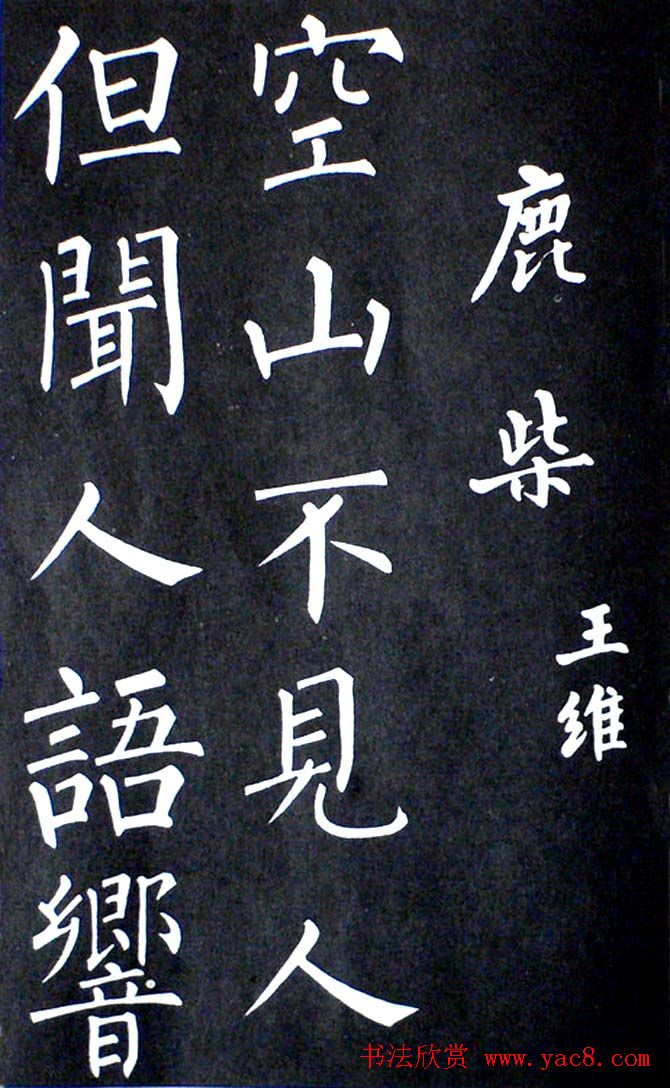 鹿柴
王维
空山不見人
但聞人語響
书法欣赏 www.yac8.com